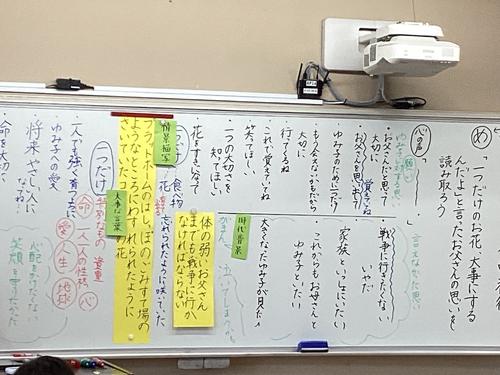 め
「一つだけのお花、大事にする
んだよ」と言ったお父さんの思いを
読み取ろう
心の声
ゆみ子に対する思い
お父さんだと思って
大切に
お父さんを思い出して
覚えてね
ゆみ子のために
もう会えないかもだから
大切に
行ってくるね
これで覚えていてね
笑ってほしい
一つの大切さを
知ってほしい
花を
戦争に行きたくない
家族といっしょにいたい
これからもお母さんと
ゆみ子といたい
大きくなったゆみ子が見たい
言えなかった思い
時代背景
体の弱いお父さん
までも戦争に行か
なければならない
情景描写
プラットホームのはしっぽの、ごみすて場の
ようなところに、わすれられたように
さいていたコスモスの花
大事な言葉
忘れられたように咲いてた
食物
花
一つだけ
特別なもの
命
一人一人の性格
心
愛
人生
地球
一人でも強く育つように
ゆみ子への愛
将来やさしい人に
なってね
命を大切に
心配をかけたくない
笑顔を